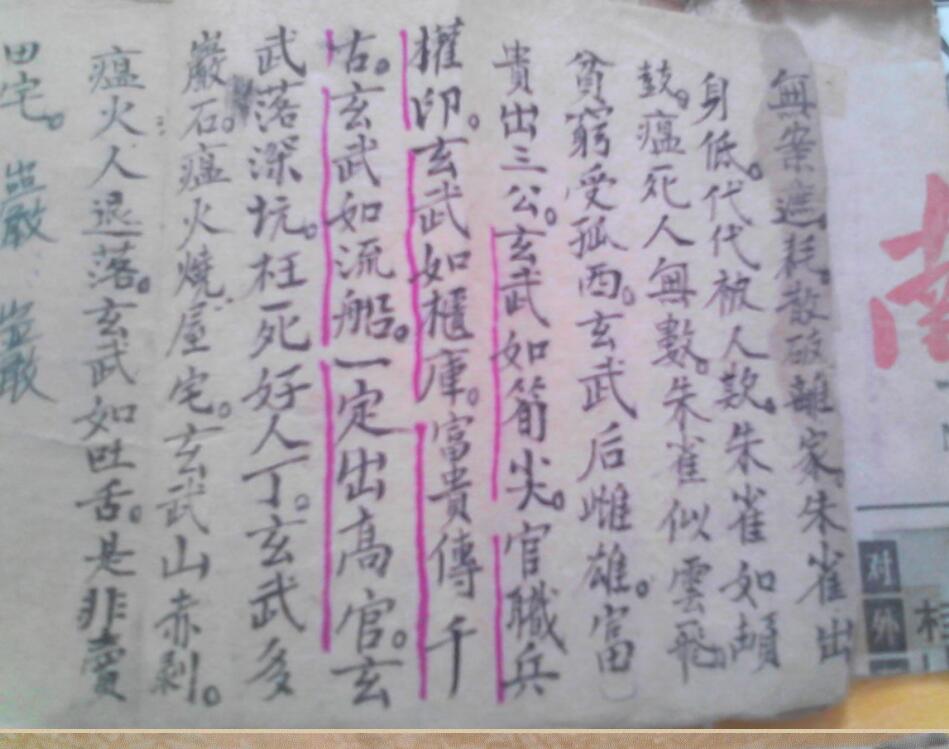 南
对
外
無案遮耗。散破離家朱雀出
身低。代代被人欺。朱雀如頡
鼓。瘟死人無數。朱雀似雲飛。
貧窮受孤西。玄武后雌雄。富
貴出三公。玄武如筍尖。官職兵
權印。玄武如櫃庫。富貴傳千
古。玄武如流船。一定出高官。玄
武落深坑。枉死好人丁。玄武多
巖石。瘟火燒屋宅。玄武山赤剥。
瘟火人退落。玄武如吐舌。是非賣
田宅。巖 巖